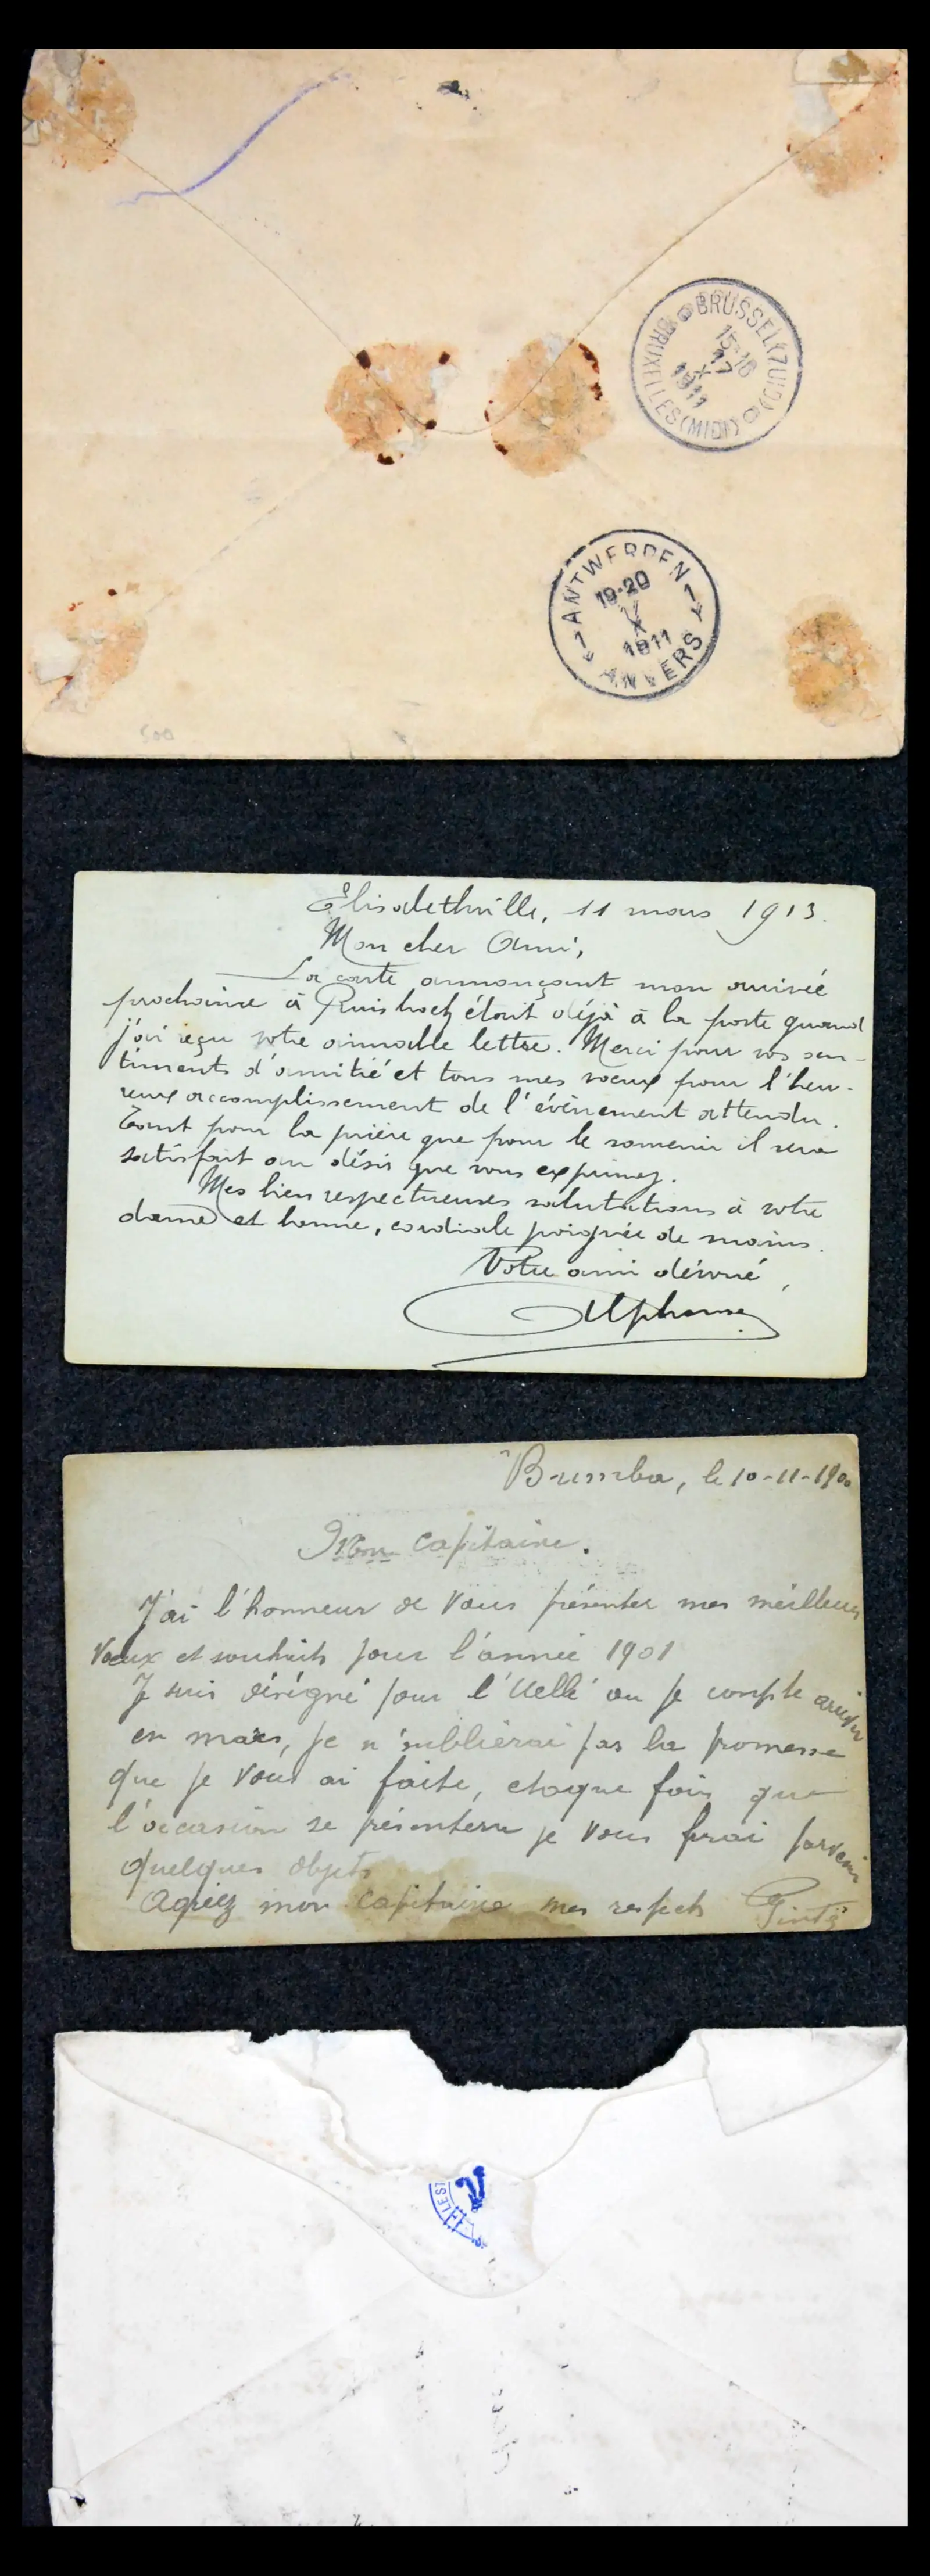 BRUSSEL (ZUID)
15-16
17
X
1911
BRUXELLES (MIDI)
ANTWERPEN 1
19-20
X
1911
1 ANVERS
500
Élisabethville, 11 mars 1913.
Mon cher Ami,
La carte annonçant mon arrivée
prochaine à était déjà à la poste quand
j'ai reçu votre aimable lettre. Merci pour vos sen-
timents d'amitié et tous mes vœux pour l'heu-
reux accomplissement de l'évènement attendu.
Tant pour la prière que pour le souvenir il sera
satisfait au désir que vous exprimez.
Mes bien respectueuses salutations à votre
dame et bonne, cordiale poignée de mains.
Votre ami dévoué,
Alphonse
Bumba, le 10-11-1900
Mon capitaine.
J'ai l'honneur de vous présenter mes meilleurs
vœux et souhaits pour l'année 1901
Je suis désigné pour l'Uellé ou je compte arriver
en mars, je n'oublierai pas la promesse
que je vous ai faite, chaque fois que
l'occasion se présentera je vous ferai parvenir
quelques objets
Agréez mon capitaine mes respects